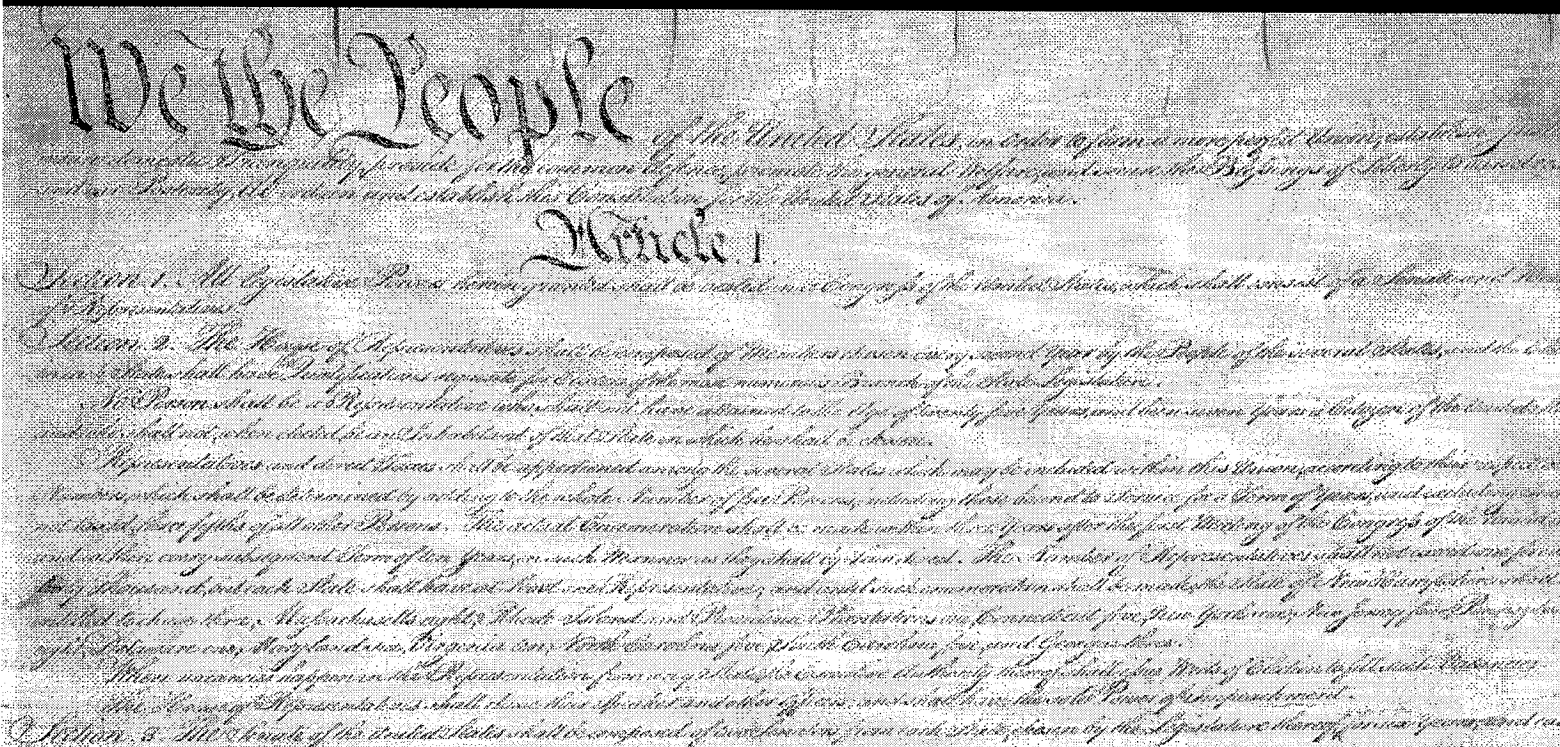 We the People
of the United States, in Order to form a more perfect Union, establish
domestic Tranquility, provide for the common defence, promote the general Welfare, and secure the Blessings of Liberty to
and our Posterity, do ordain and establish this Constitution for the United States of America.
Article. I.
Section. 1. All legislative Powers herein granted shall be vested in a Congress of the United States, which shall consist of a Senate and
of Representatives.
Section. 2. The House of Representatives shall be composed of Members chosen every second Year by the People of the several States, and the
in each State shall have Qualifications requisite for Electors of the most numerous Branch of the State Legislature.
No Person shall be a Representative who shall not have attained to the Age of twenty five Years, and been seven Years a Citizen of the United
and who shall not, when elected, be an Inhabitant of that State in which he shall be chosen.
Representatives and direct Taxes shall be apportioned among the several States which may be included within this Union, according to their respective
Numbers, which shall be determined by adding to the whole Number of free Persons, including those bound to Service for a Term of Years, and excluding
not taxed, three fifths of all other Persons. The actual Enumeration shall be made within three Years after the first Meeting of the Congress of the United
and within every subsequent Term of ten Years, in such Manner as they shall by Law direct. The Number of Representatives shall not exceed one for
thirty Thousand, but each State shall have at Least one Representative; and until such enumeration shall be made, the State of New Hampshire shall
entitled to chuse three, Massachusetts eight, Rhode Island and Providence Plantations one, Connecticut five, New York six, New Jersey four,
eight, Delaware one, Maryland six, Virginia ten, North Carolina five, South Carolina five, and Georgia three.
When vacancies happen in the Representation from any State, the Executive Authority thereof shall issue Writs of Election to fill such Vacancies.
The House of Representatives shall chuse their Speaker and other Officers; and shall have the sole Power of Impeachment.
Section. 3. The Senate of the United States shall be composed of two Senators from each State, chosen by the Legislature thereof, for six Years; and